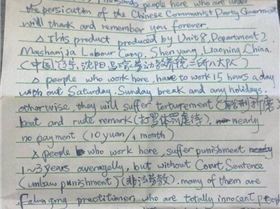 thousands people here who are under
the persicution of the Chinese Communist Party Government
will thank and remember you forever.
△ This product produced by Unit 8, Department 2
Masanjia Labour Camp, Shen yang, Liaoning, China
(中国, 辽宁, 沈阳, 马三家
△ people who work here, have to work 15 hours a day
with out Saturday, Sunday break and any holidays.
otherwise, they will suffer torturement
beat and rude remark nearly
no payment (10 yuan / month)
△ people who work here, suffer punishment nearly
1~3 years averagelly, but without Court Sentence
(unlaw punishment) many of them are
Falun gong practitioner, who are totally innocent